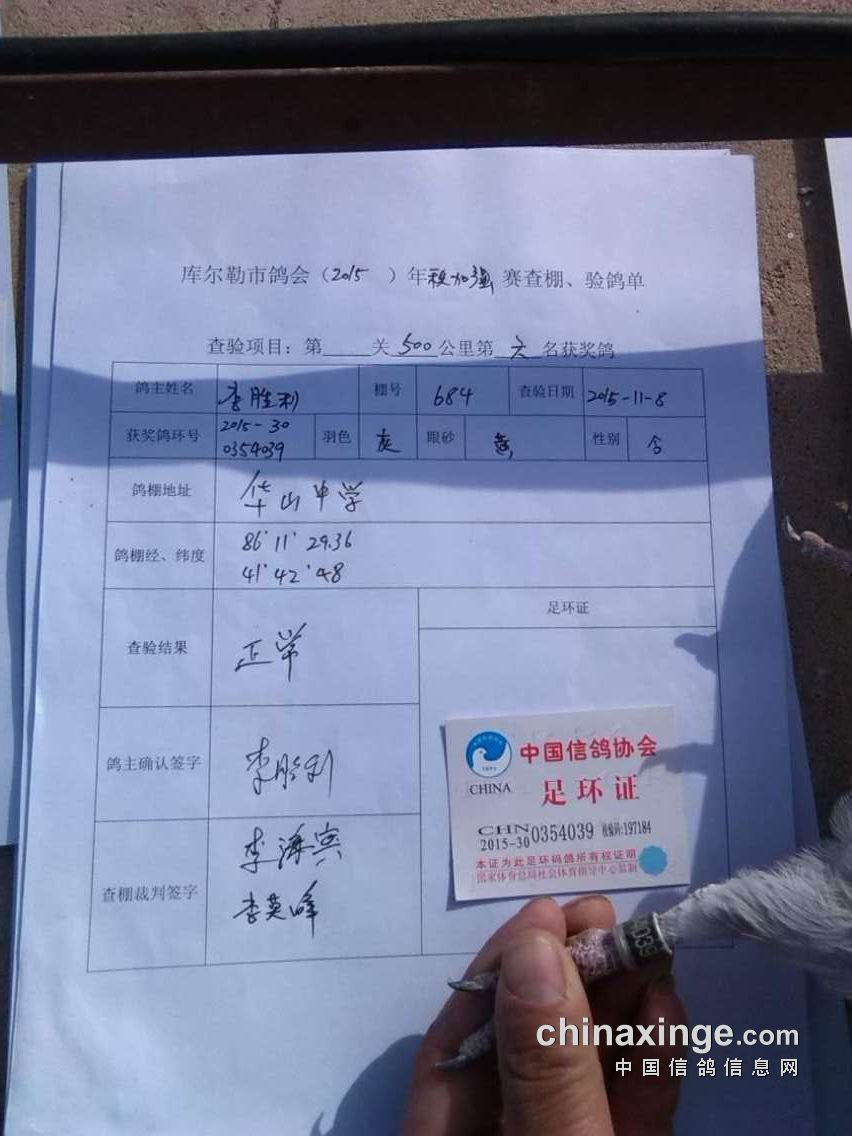 库尔勒市鸽会（2015 ）年秋加强 赛查棚、验鸽单
查验项目：第____关 500 公里第 六 名获奖鸽
鸽主姓名 李胜利 棚号 684 查验日期 2015-11-8
获奖鸽环号 2015-30 0354039 羽色 灰 眼砂 黄 性别
鸽棚地址 华山中学
鸽棚经、纬度 86°11'29.36
41°42'48
查验结果 正常 足环证
鸽主确认签字 李胜利
查棚裁判签字 李海宾
李英峰
中国信鸽协会
CHINA 足环证
CHN
2015-30 0354039 校验码:197184
本证为此足环码鸽所有权证明
国家体育总局社会体育指导中心监制
4039
chinaxinge.com
中国信鸽信息网